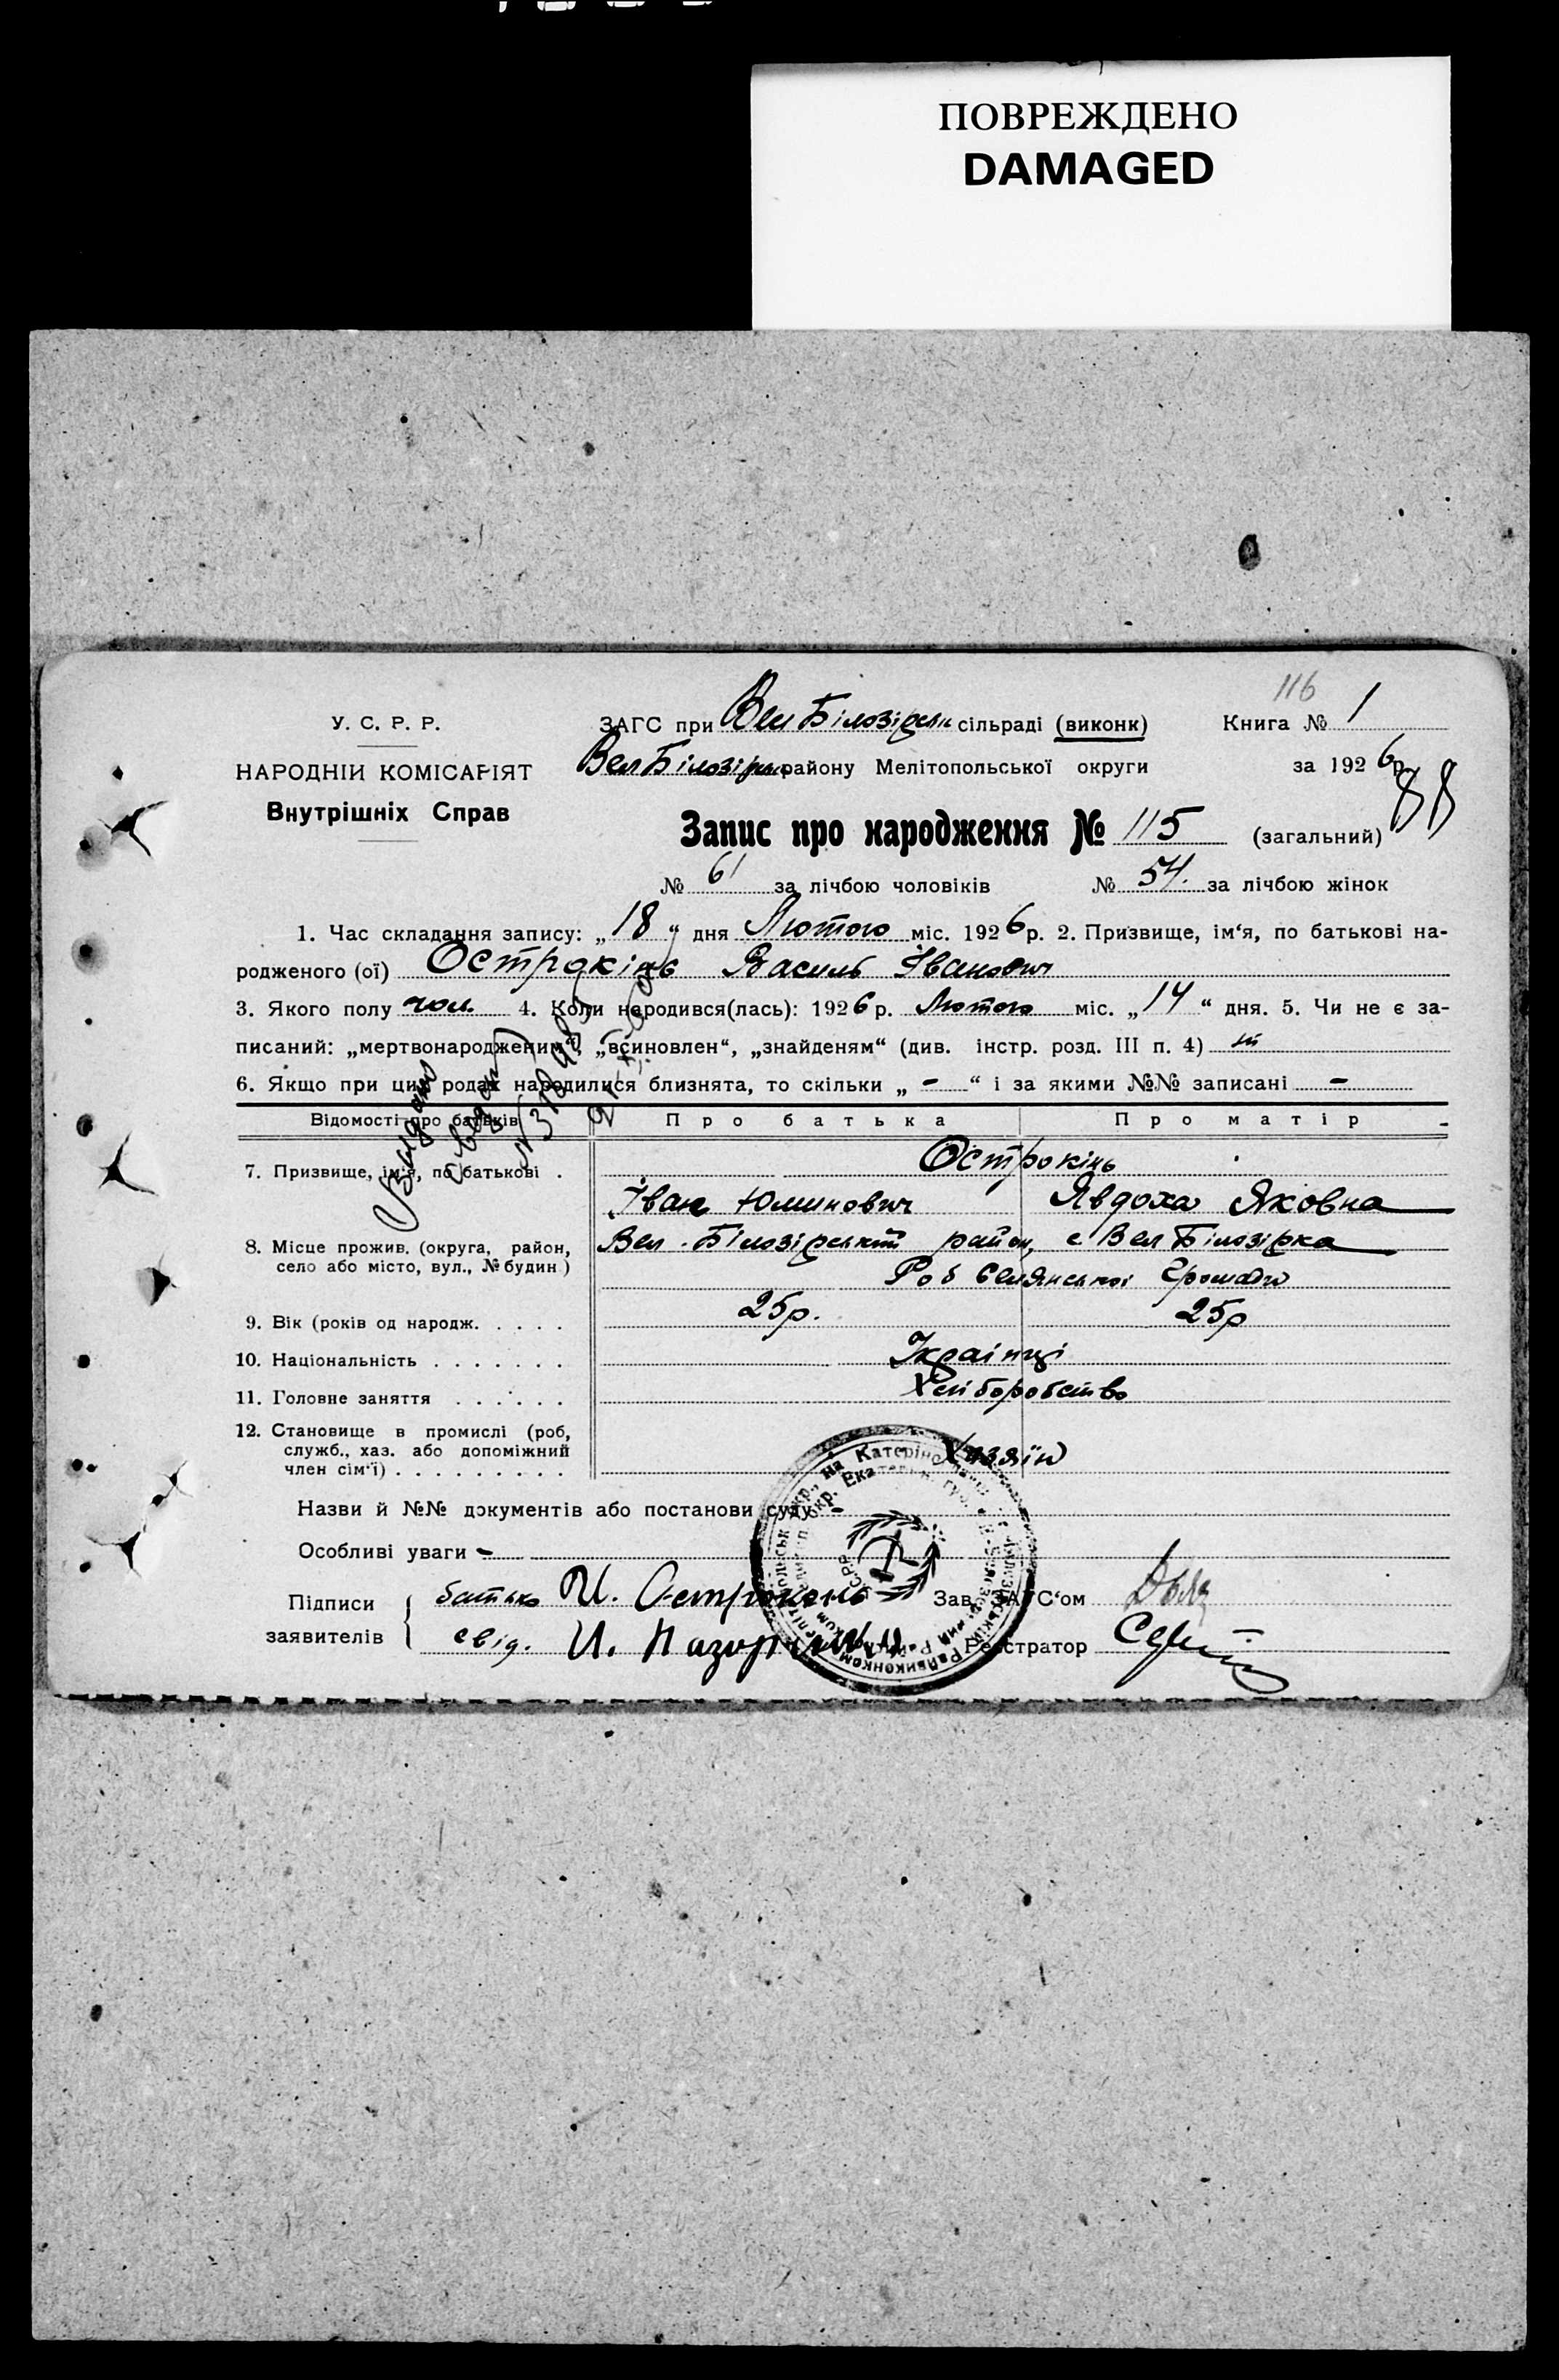 ПОВРЕЖДЕНО
DAMAGED
116
У. С. Р. Р.
ЗАГС при Вел Білозірськ сільраді (виконк)
Книга № 1
НАРОДНІЙ КОМІСАРІЯТ
Вел Білозірськ району Мелітопольської округи
за 1926 р.
88
Внутрішніх Справ
Запис про народження № 115 (загальний)
№ 61 за лічбою чоловіків № 54. за лічбою жінок
1. Час складання запису: „18“ дня Лютого міс. 1926 р. 2. Призвище, ім‘я, по батькові на-
родженого (ої) Острокінь Василь Іванович
3. Якого полу чол. 4. Коли народився(лась): 1926 р. Лютого міс. „14“ дня. 5. Чи не є за-
писаний: „мертвонародженим“, „всиновлен“, „знайденям“ (див. інстр. розд. III п. 4) ні
6. Якщо при цих родах народилися близнята, то скільки „ - “ і за якими №№ записані -
Видано
Відомості про батьків Про батька Про матір
7. Призвище, ім‘я, по батькові . Острокінь
Іван Юхимович Явдоха Яковна
8. Місце прожив. (округа, район, Вел. Білозірський район, с Вел Білозірка
село або місто, вул., № будин) Роб Селянської Громади
9. Вік (років од народж. . . . . 25р. 25р
10. Національність . . . . . . . Українці
11. Головне заняття . . . . . . Хліборобство
12. Становище в промислі (роб,
служб., хаз. або допоміжний Хазяїн
член сім‘ї) . . . . . . . . .
Назви й №№ документів або постанови суду -
Особливі уваги -
Підписи батько И. Острокень Зав. ЗАГС‘ом
заявителів свід. И. Реєстратор